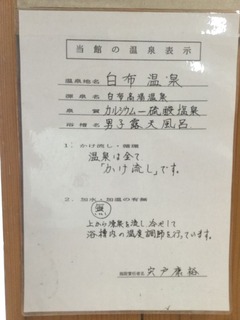 当館の温泉表示
温泉地名 白布温泉
源泉名 白布高湯温泉
泉質 カルシウム一硫酸塩泉
浴槽名 男子露天風呂
1. かけ流し・循環
温泉は全て
「かけ流し」です。
2. 加水・加温の有無
上から源泉を流し冷せして
浴槽内の温度調節を行っています。
宍戸康裕